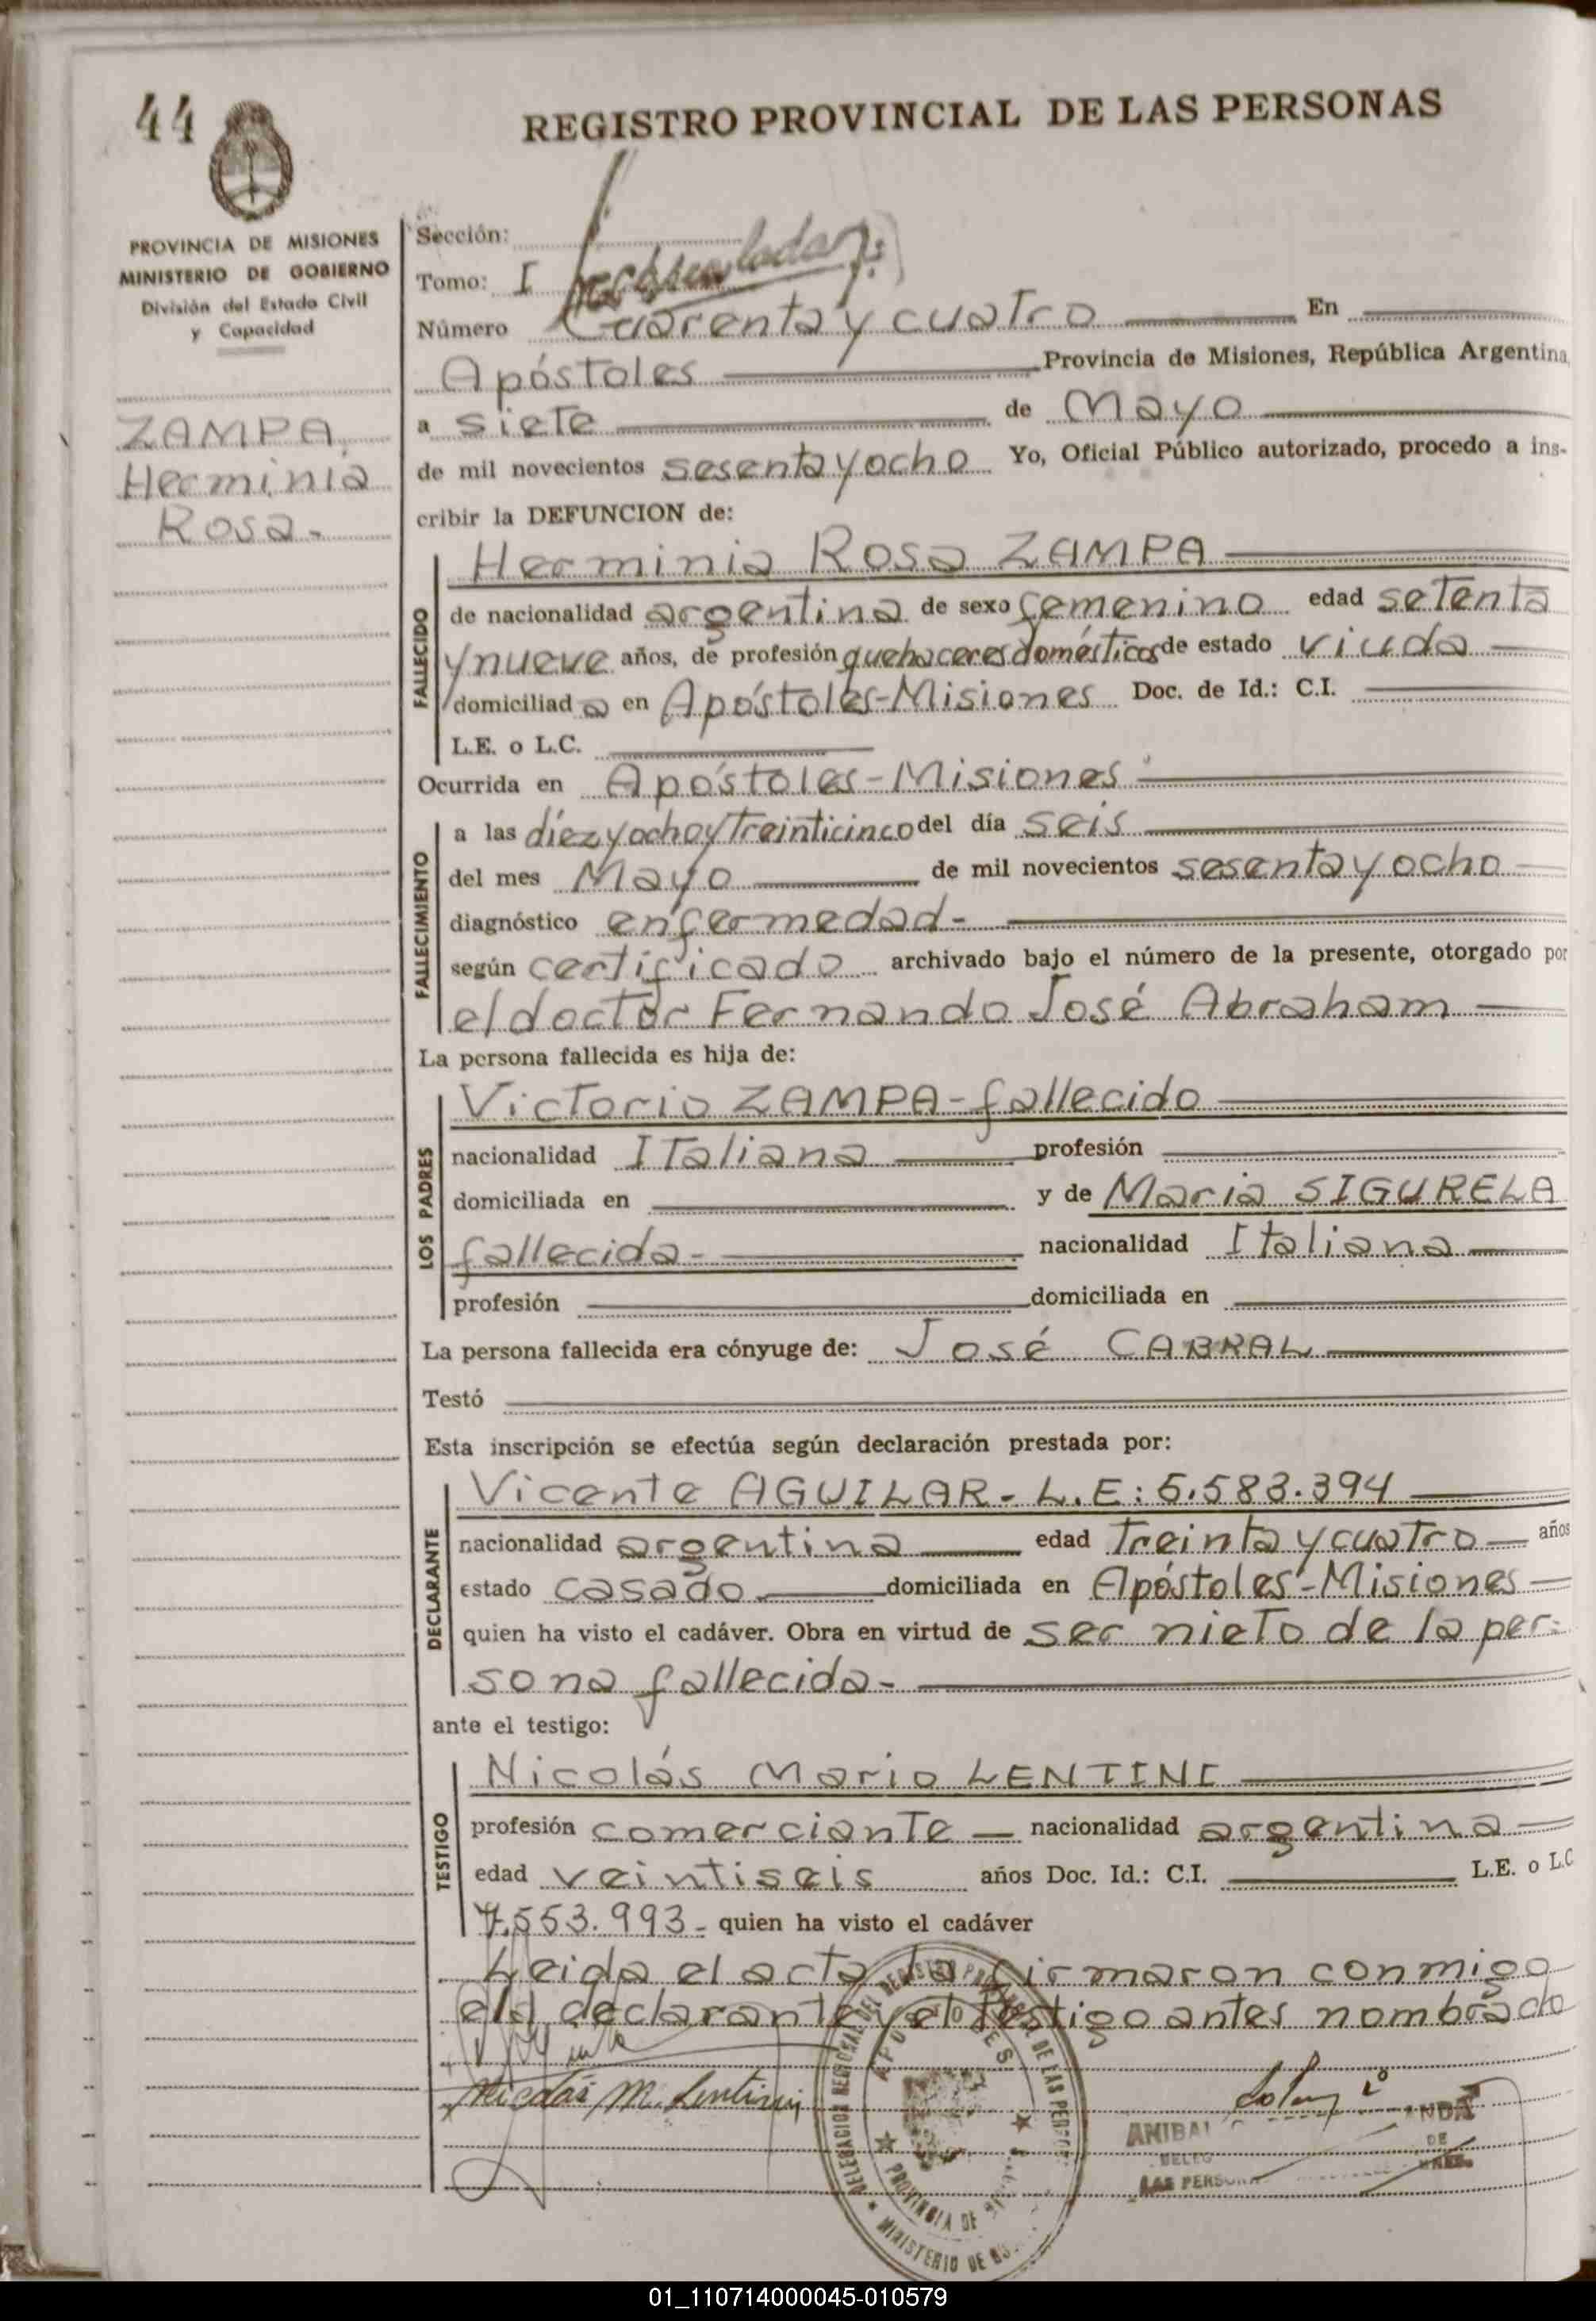 44
REGISTRO PROVINCIAL DE LAS PERSONAS
PROVINCIA DE MISIONES
MINISTERIO DE GOBIERNO
División del Estado Civil
y Capacidad
ZAMPA,
Herminia
Rosa.-
Sección:
Tomo: I
Número Cuarenta y cuatro En
Apóstoles Provincia de Misiones, República Argentina,
a siete de Mayo
de mil novecientos sesenta y ocho Yo, Oficial Público autorizado, procedo a ins-
cribir la DEFUNCION de:
FALLECIDO
Herminia Rosa ZAMPA
de nacionalidad argentina de sexo femenino edad setenta
y nueve años, de profesión quehaceres domésticos de estado viuda
domiciliad a en Apóstoles-Misiones Doc. de Id.: C.I.
L.E. o L.C.
Ocurrida en Apóstoles-Misiones
FALLECIMIENTO
a las diez y ocho y treinticinco del día seis
del mes Mayo de mil novecientos sesenta y ocho
diagnóstico enfermedad-
según certificado archivado bajo el número de la presente, otorgado por
el doctor Fernando José Abraham
La persona fallecida es hija de:
LOS PADRES
Victorio ZAMPA-fallecido
nacionalidad Italiana profesión
domiciliada en y de Maria SIGURELA
fallecida- nacionalidad Italiana
profesión domiciliada en
La persona fallecida era cónyuge de: José CABRAL
Testó
Esta inscripción se efectúa según declaración prestada por:
DECLARANTE
Vicente AGUILAR.- L.E: 5.583.394
nacionalidad argentina edad treinta y cuatro años
estado casado domiciliada en Apóstoles-Misiones
quien ha visto el cadáver. Obra en virtud de ser nieto de la per-
sona fallecida-
ante el testigo:
TESTIGO
Nicolás Mario LENTINI
profesión comerciante nacionalidad argentina
edad veintiseis años Doc. Id.: C.I. L.E. o L.C
7.553.993- quien ha visto el cadáver
Leida el acta la firmaron conmigo
el declarante y el testigo antes nombrado
Nicolás M. Lentini
DELEGACION REGIONAL DEL REGISTRO PROVINCIAL DE LAS PERSONAS
APOSTOLES
PROVINCIA DE
MINISTERIO DE
ANIBAL
LAS PERSON
01_110714000045-010579